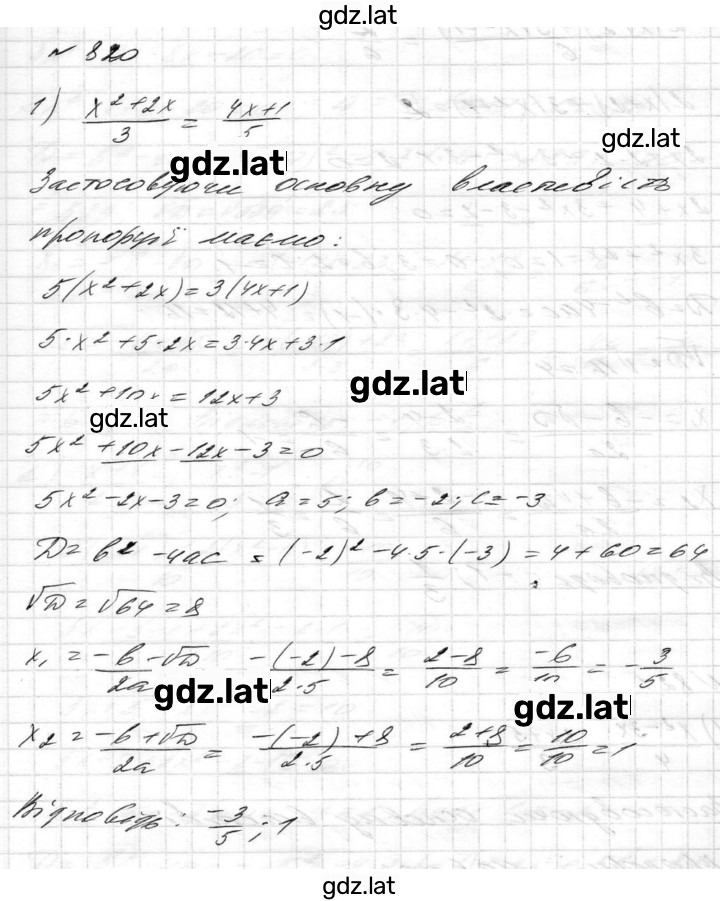 gdz.lat
№ 820
1) (x²+2x)/3 = (4x+1)/5
gdz.lat
gdz.lat
Застосовуючи основну властивість
пропорції маємо:
5(x²+2x)=3(4x+1)
5·x²+5·2x=3·4x+3·1
gdz.lat
5x²+10x=12x+3
gdz.lat
5x²+10x-12x-3=0
5x²-2x-3=0; a=5; b=-2; c=-3
D=b²-4ac=(-2)²-4·5·(-3)=4+60=64
√D=√64=8
x₁=(-b-√D)/2a (-(-2)-8)/2·5=(2-8)/10=-6/10=-3/5
gdz.lat
gdz.lat
x₂=(-b+√D)/2a=(-(-2)+8)/2·5=(2+8)/10=10/10=1
Відповідь: -3/5; 1
gdz.lat